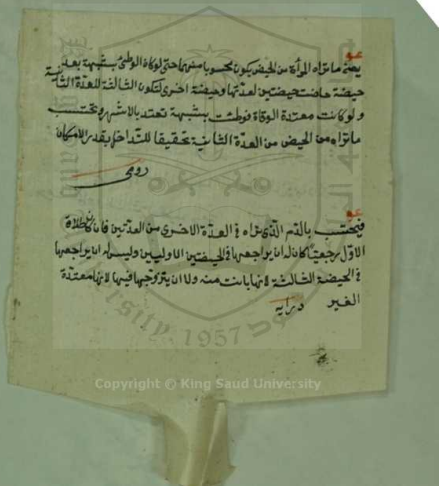 يعني ما تراه المرأة من الحيض يكون محسوبا منهما حتى لو كان الوطئ بشبهة بعد
حيضة حاضت حيضتين لعدتها وحيضة اخرى لتكون الثالثة للعدة الثانية
ولو كانت معتدة الوفاة فوطئت بشبهة تعتد بالاشهر وتحتسب
ما تراه من الحيض من العدة الثانية تحقيقا للتداخل بقدر الامكان
فيحتسب بالدم الذي تراه في العدة الاخرى من العدتين فان كان طلاق
الاول رجعيا كان له ان يراجعها في الحيضتين الاوليين وليس له ان يراجعها
في الحيضة الثالثة لانها بانت منه ولا ان يتزوجها فيها لانها معتدة
الغير دراية
1957
Copyright © King Saud University